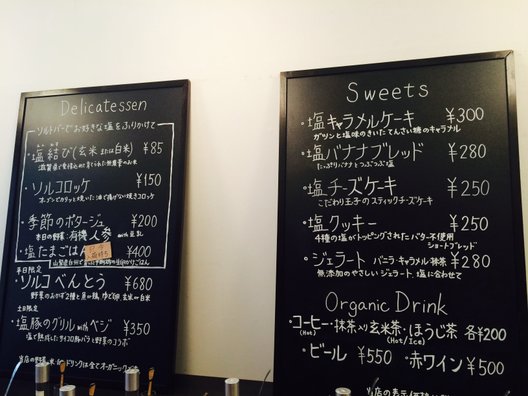 Delicatessen
ソルトバーでお好きな塩をふりかけて
・塩結び(玄米または白米) ¥85
滋賀県で愛情込めて育てられた無農薬のお米
・ソルコロッケ ¥150
オーブンでカラッと焼いた油で揚げない焼きコロッケ
・季節のポタージュ ¥200
本日の野菜:有機人参 with 豆乳
・塩たまごはん ¥400
平日限定
・ソルコべんとう ¥680
野菜のおかず2種と魚or鶏、ゆで卵、玄米or白米
土日限定
・塩豚のグリル with ベジ ¥350
塩で熟成した豚バラと野菜のコラボ
Sweets
・塩キャラメルケーキ ¥300
ガツンと塩味のきいたてんさい糖のキャラメル
・塩バナナブレッド ¥280
たっぷりバナナとつぶつぶ塩
・塩チーズケーキ ¥250
こだわり玉子のスティックチーズケーキ
・塩クッキー ¥250
4種の塩がトッピングされたバター不使用
ショートブレッド
・ジェラート バニラ・キャラメル・抹茶 ¥280
無添加のやさしいジェラート 塩に合わせて
Organic Drink
・コーヒー・抹茶入り玄米茶・ほうじ茶 各¥200
(Hot) (Hot/Ice)
・ビール ¥550 ・赤ワイン ¥500